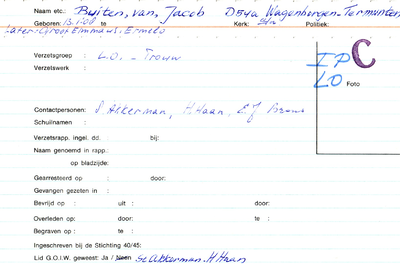 Naam etc.: Buiten, van, Jacob D54a Wagenbergen-Termunten
Geboren: 13.1.08 te Kerk: Politiek:
Later: Groot Emmaus-Ermelo
Verzetsgroep : L.O. - Trouw
Verzetswerk :
I P C
LO Foto
Contactpersonen: S. Akkerman, H. Haan, E.J.
Schuilnamen :
Verzetsrapp. ingel. dd. : bij:
Naam genoemd in rapp.:
op bladzijde:
Gearresteerd op : door:
Gevangen gezeten in :
Bevrijd op : uit : door:
Overleden op: door: te :
Begraven op : te :
Ingeschreven bij de Stichting 40/45:
Lid G.O.I.W. geweest: Ja / Neen S. Akkerman. H. Haan